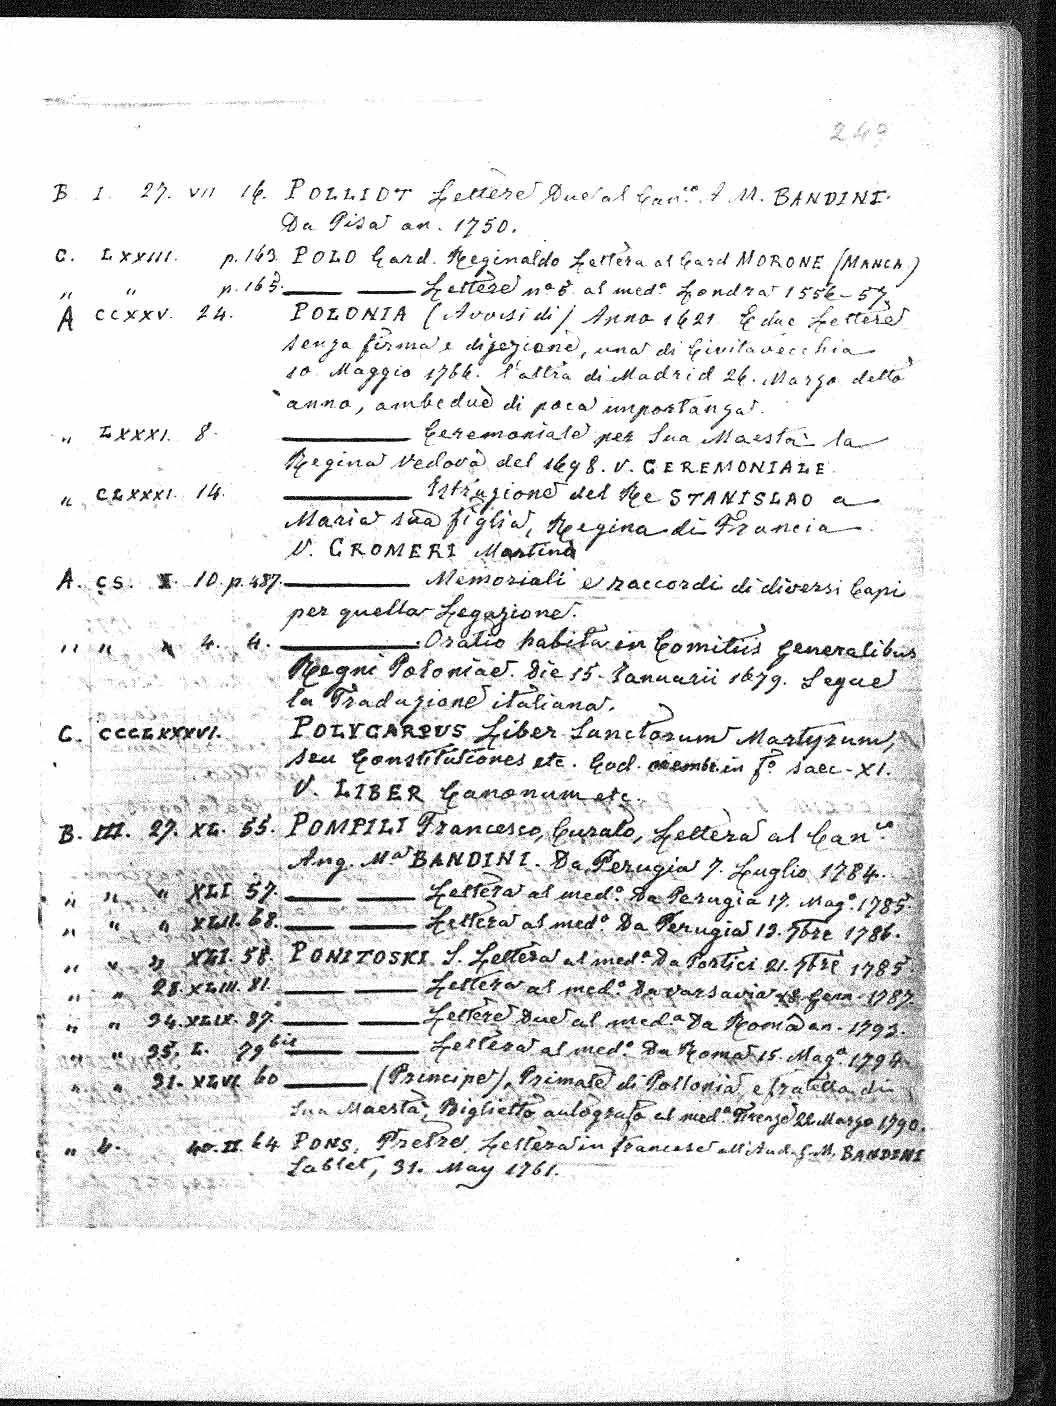 249
B I. 27. VII 16. POLLIOT Lettere Due al Can.co A. M. BANDINI.
Da Pisa an. 1750.
C. LXXIII. p. 163. POLO Card. Reginaldo Lettera al Card MORONE (MANCA)
" " p. 165. — — Lettere n° 6. al med.° Londra 1556–57.
A CCXXV. 24. POLONIA (Avvisi di) Anno 1621 E due Lettere
senza firma e direzione, una di Civitavecchia
10 Maggio 1766. l'altra di Madrid 26. Marzo detto
anno, ambedue di poca importanza.
" LXXXI. 8. — Ceremoniale per Sua Maestà la
Regina Vedova del 1698. V. CEREMONIALE
" CLXXXI. 14. — Istruzione del Re STANISLAO a
Maria sua figlia, Regina di Francia
V. CROMERI Martino
A. CS. X. 10. p. 487. — Memoriali e raccordi di diversi Capi
per quella Legazione.
" " X 4. 4. — Oratio habita in Comitiis generalibus
Regni Poloniae. Die 15. Ianuarii 1679. Segue
la Traduzione italiana.
C. CCCLXXXVI. POLYCARPUS Liber Sanctorum Martyrum,
seu Constitutiones etc. Cod. membr. in f.° saec. XI.
V. LIBER Canonum etc.
B. III. 27. XL. 55. POMPILI Francesco, Curato, Lettera al Can.co
Ang. M.a BANDINI. Da Perugia 7. Luglio 1784.
" " " XLI 57. — — Lettera al med.° Da Perugia 17. Mag.° 1785.
" " " XLII. 68. — — Lettera al med.° Da Perugia 12. 9bre 1786.
" " " XLI. 58. PONITOSKI S. Lettera al med.° Da Portici 21. 9bre 1785.
" " 28. XLIII. 81. — — Lettera al med.° Da Varsavia 18. Genn. 1787.
" " 34. XLIX. 87. — — Lettere Due al med.° Da Roma an. 1793.
" " 35. L. 79 bis — — Lettera al med.° Da Roma 15. Mag.° 1794.
" " 31. XLVI 60 — (Principe), Primate di Pollonia, e fratello di
Sua Maestà, Biglietto autografo al med.° Firenze 22. Marzo 1790.
" 6. 40. II. 64 PONS, Pretre, Lettera in francese all' A. M. BANDINI
Sablet, 31. May 1761.